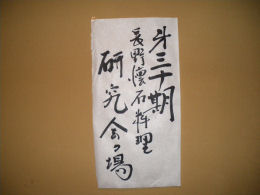 第三十期
長野懐石料理
研究会の場